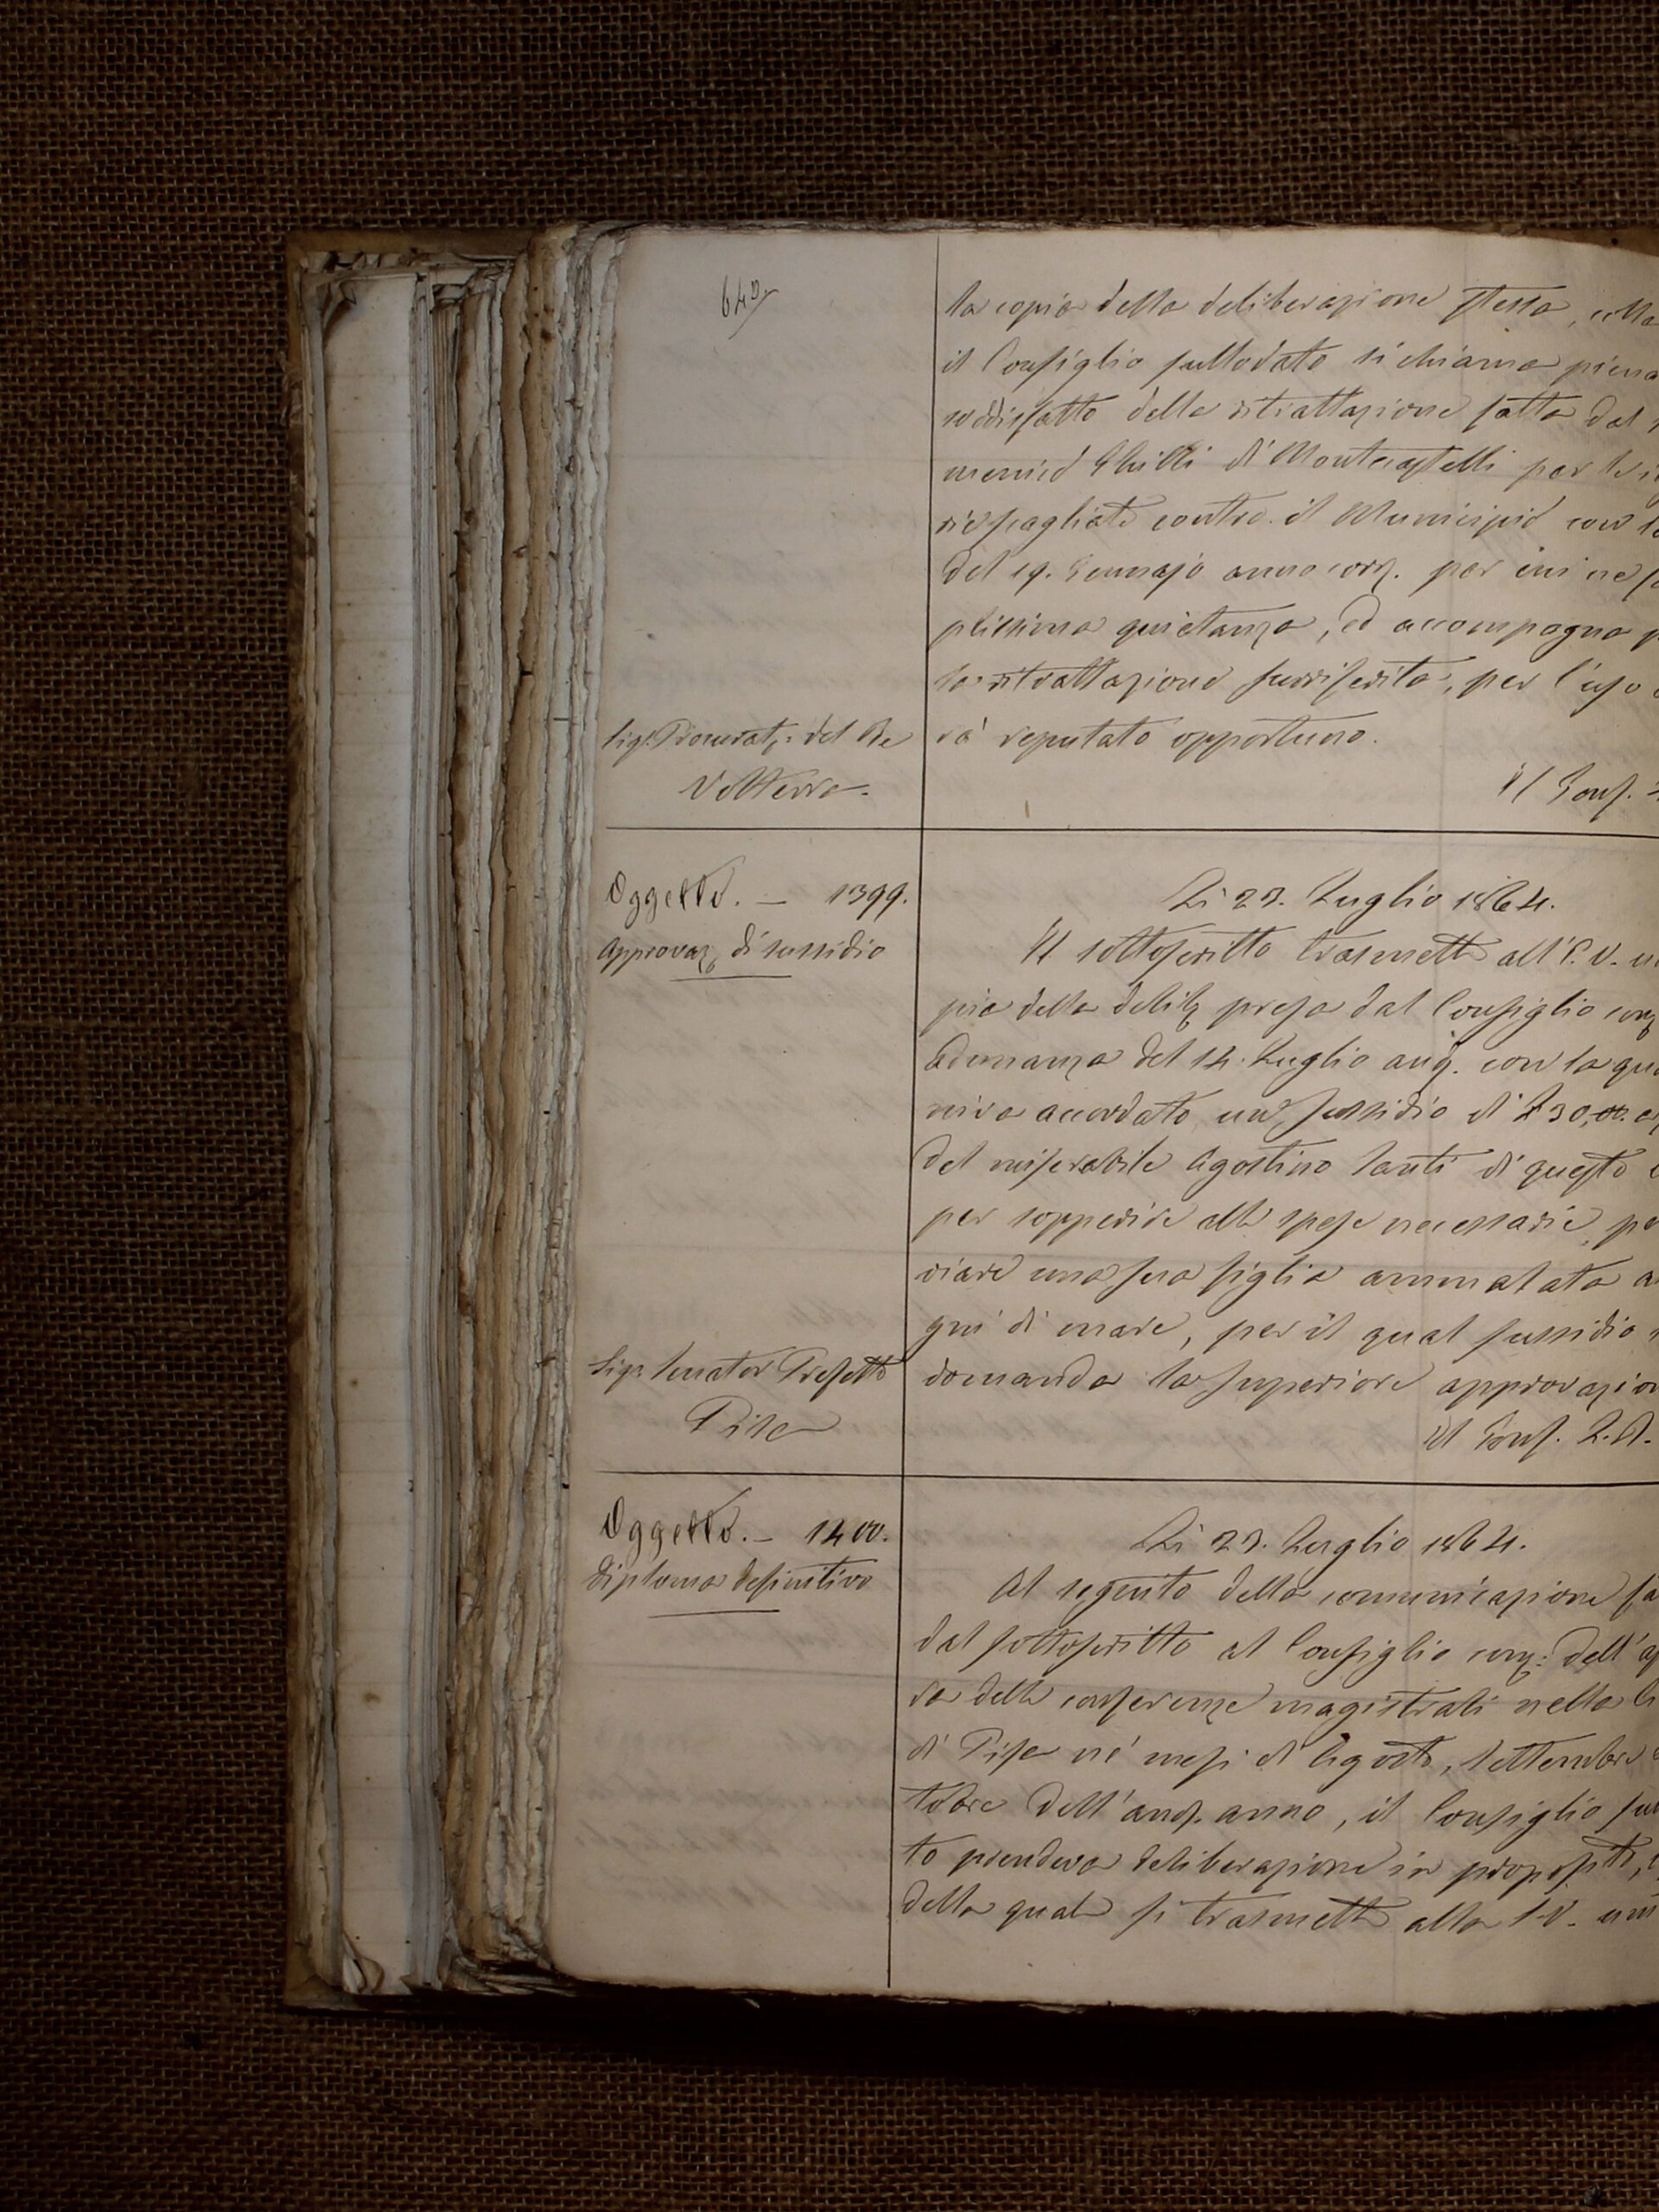 640
la copia della deliberazione stessa, colla
il Consiglio sullodato si chiama piena
soddisfatto della ritrattazione fatta dal
menico Ghilli di Montecastelli per le in
rie scagliate contro il Municipio con
del 19. Gennajo anno corr. per cui ne
plissima quietanza, ed accompagna
la ritrattazione surriferita, per l'uso
Sigr. Procurat: del Re
rà reputato opportuno.
Volterra.
Il Gonf.
Oggetto. — 1399.
Li 23. Luglio 1864.
Approvaz. di sussidio
Il sottoscritto trasmette all'
pia della delibz presa dal Consiglio
Adunanza del 14. Luglio and. con la qua
niva accordato un sussidio di £30,00.
del miserabile Agostino Santi di questo
per sopperire alle spese necessarie, pe
viare una sua figlia ammalata a
gni di mare, per il qual sussidio
Sigr. Senator Prefetto
domanda la superiore approvazion
Pisa
Il Gonf. R. A.
Oggetto. — 1400.
Li 23. Luglio 1864.
Diploma definitivo
Al seguito della comunicazione fa
dal sottoscritto al Consiglio com: dell'ap
ra delle conferenze magistrali nella
di Pisa ne' mesi di Agosto, Settembre
tobre dell'and. anno, il Consiglio
to prendeva deliberazione in proposito,
della quale si trasmette alla S.V. un